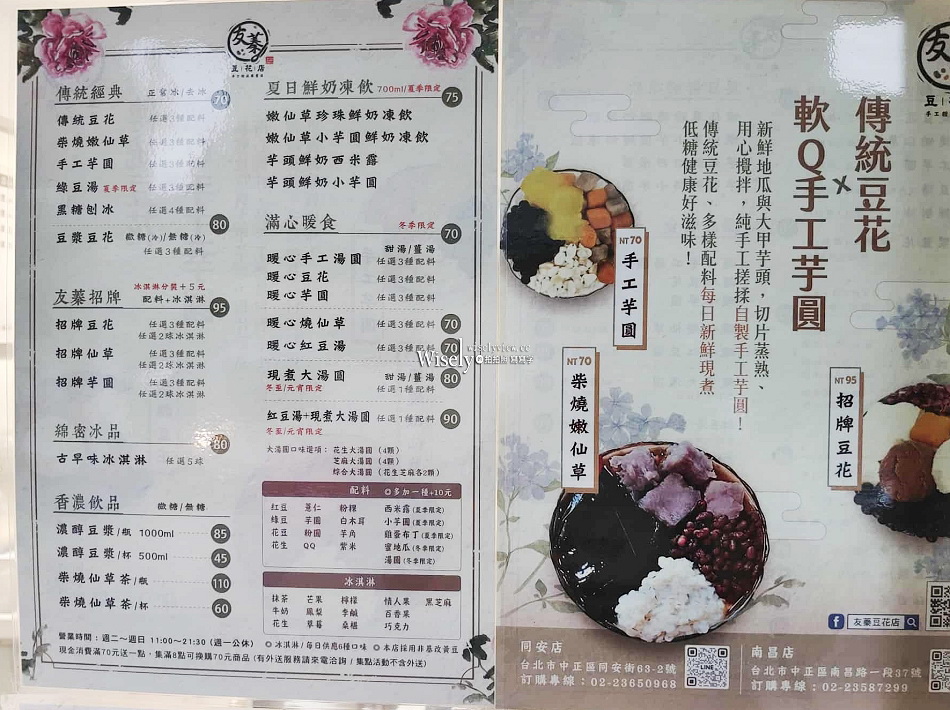 友蓁
豆花店
傳統經典 正常冰/去冰 70
傳統豆花 任選3種配料
柴燒嫩仙草 任選3種配料
手工芋圓 任選3種配料
綠豆湯 夏季限定 任選3種配料
黑糖刨冰 任選4種配料
豆漿豆花 微糖(冷)/無糖(冷) 80
任選3種配料
冰淇淋分裝+5元
友蓁招牌 配料+冰淇淋 95
招牌豆花 任選3種配料
任選2球冰淇淋
招牌仙草 任選3種配料
任選2球冰淇淋
招牌芋圓 任選3種配料
任選2球冰淇淋
綿密冰品 80
古早味冰淇淋 任選5球
香濃飲品 微糖/無糖
濃醇豆漿/瓶 1000ml 85
濃醇豆漿/杯 500ml 45
柴燒仙草茶/瓶 110
柴燒仙草茶/杯 60
夏日鮮奶凍飲 700ml/夏季限定 75
嫩仙草珍珠鮮奶凍飲
嫩仙草小芋圓鮮奶凍飲
芋頭鮮奶西米露
芋頭鮮奶小芋圓
滿心暖食 冬季限定 70
甜湯/薑湯
暖心手工湯圓 任選3種配料
暖心豆花 任選3種配料
暖心芋圓 任選3種配料
暖心燒仙草 任選3種配料 70
暖心紅豆湯 任選3種配料 70
wisely
Wisely拍拍照寫寫字
現煮大湯圓 甜湯/薑湯 80
冬至/元宵限定 任選1種配料
紅豆湯+現煮大湯圓 任選1種配料 90
冬至/元宵限定
大湯圓口味選項: 花生大湯圓 (4顆)
芝麻大湯圓 (4顆)
綜合大湯圓 (花生芝麻各2顆)
配料 ◎多加一種+10元
紅豆 薏仁 粉粿 西米露(夏季限定)
綠豆 芋圓 白木耳 小芋圓(夏季限定)
花豆 粉圓 芋角 雞蛋布丁(夏季限定)
花生 QQ 紫米 蜜地瓜(冬季限定)
湯圓(冬季限定)
冰淇淋
抹茶 芒果 檸檬 情人果 黑芝麻
牛奶 鳳梨 李鹹 百香果
花生 草莓 桑椹 巧克力
營業時間:週二~週日 11:00~21:30 (週一公休) ◎冰淇淋/每日供應6種口味 ◎本店採用非基改黃豆
現金消費滿70元送一點,集滿8點可換購70元商品 (有外送服務請來電洽詢 / 集點活動不含外送)
友
豆
手工
傳統豆花
×
軟Q手工芋圓
新鮮地瓜與大甲芋頭,切片蒸熟、
用心攪拌,純手工搓揉自製手工芋圓!
傳統豆花、多樣配料每日新鮮現煮
低糖健康好滋味!
NT 70
手工芋圓
NT 70
柴燒嫩仙草
NT 95
招牌豆花
f 友蓁豆花店
同安店
台北市中正區同安街63-2號
訂購專線:02-23650968
LINE
南昌店
台北市中正區南昌路一段37號
訂購專線:02-23587299